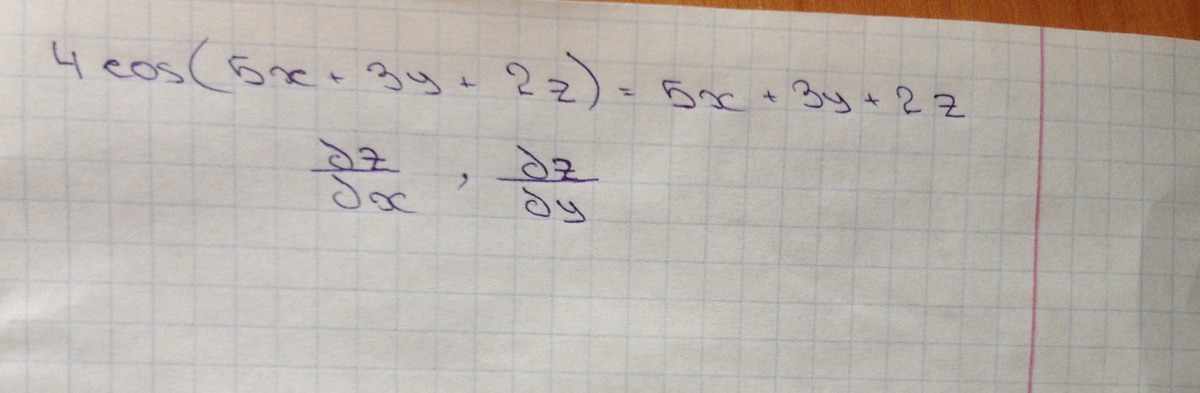 4 cos(5x + 3y + 2z) = 5x + 3y + 2z
∂z/∂x , ∂z/∂y